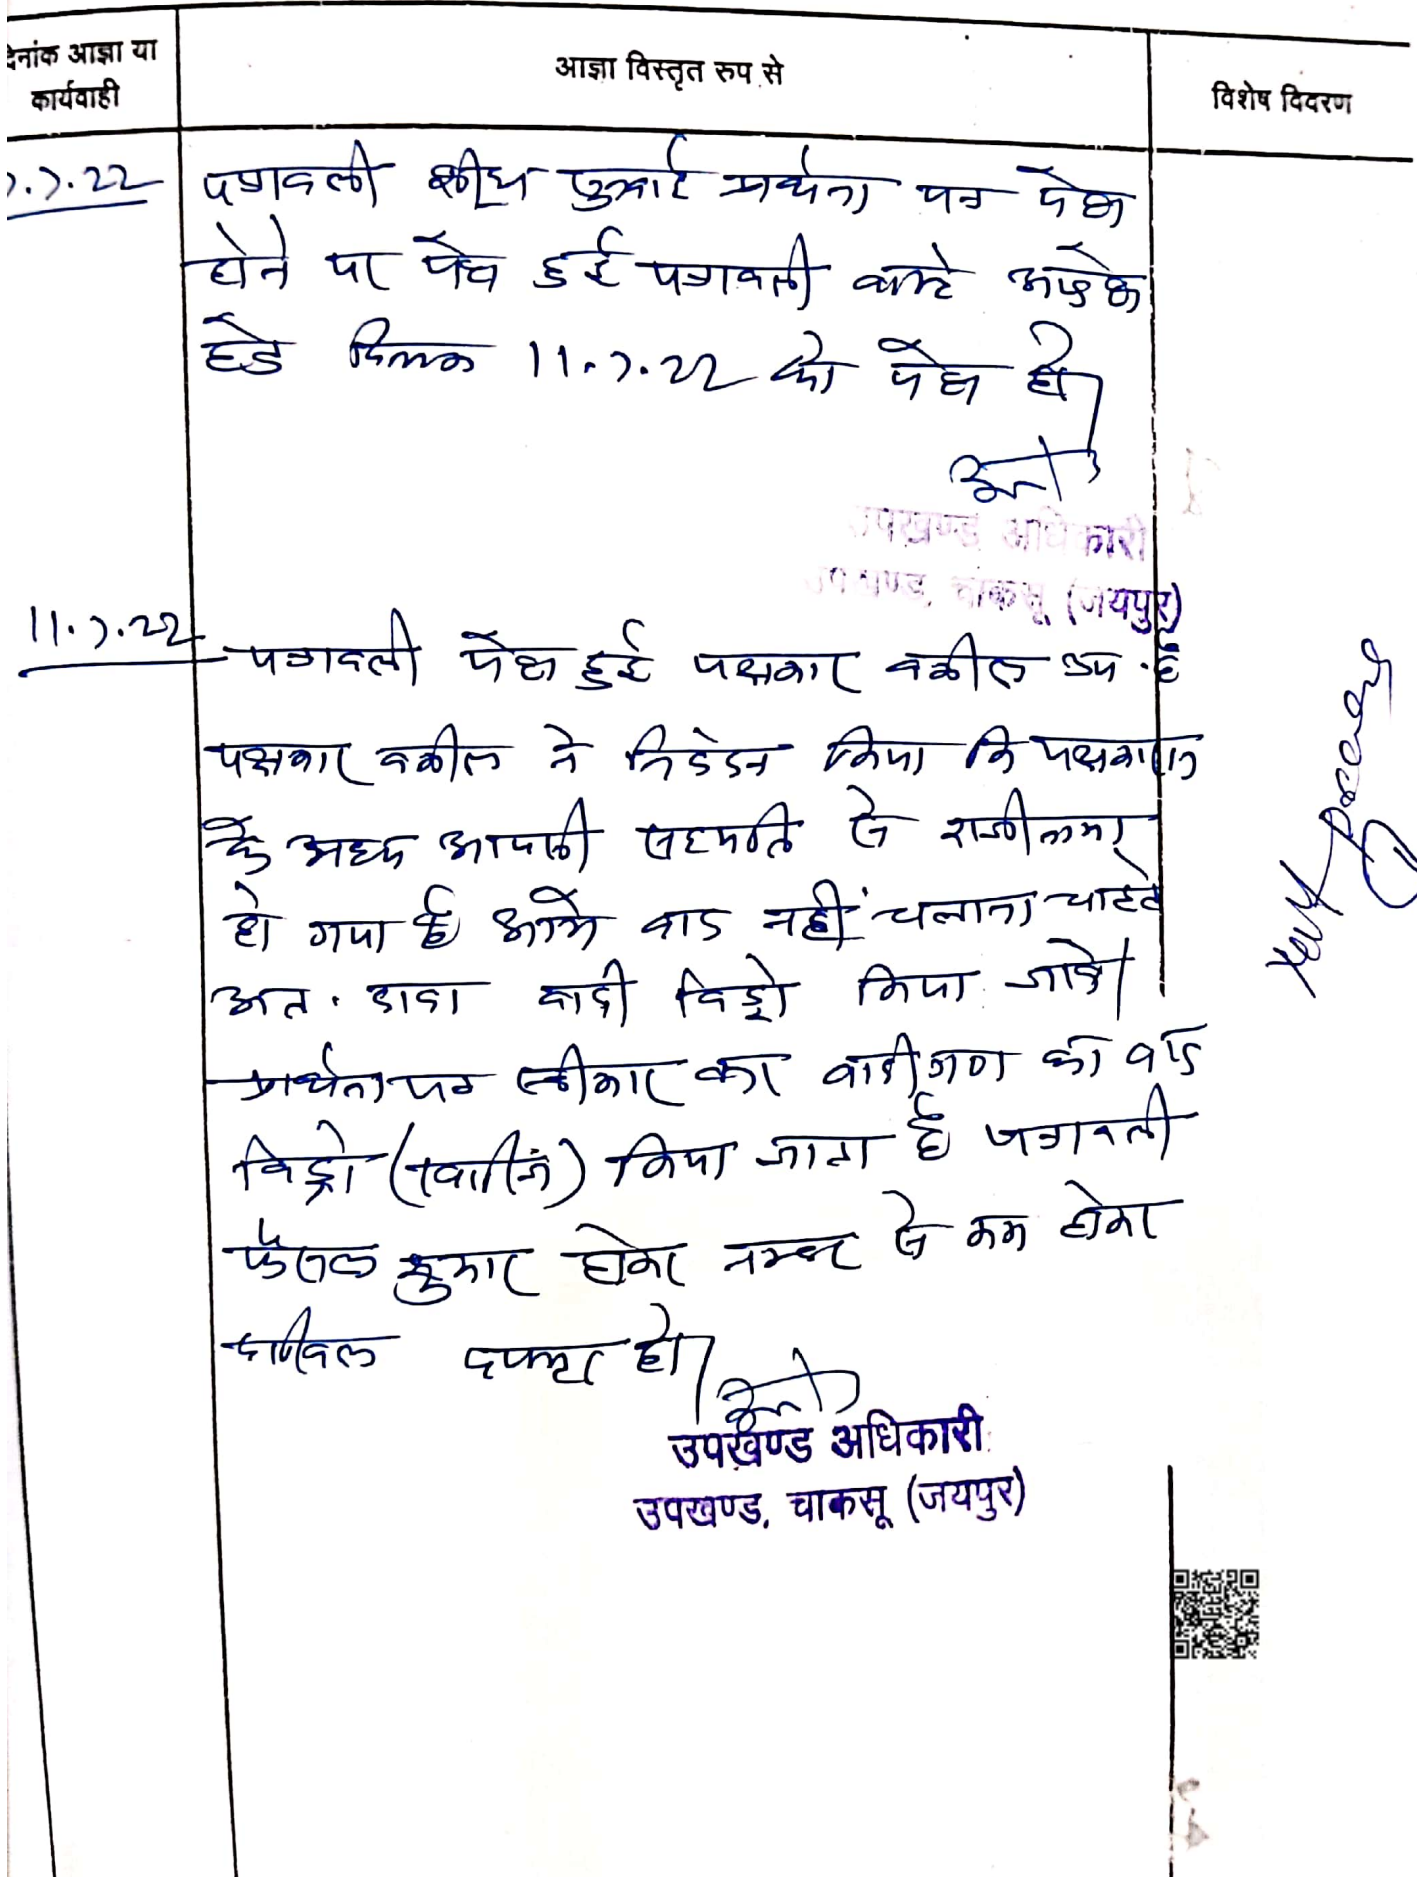 दिनांक आज्ञा या
कार्यवाही
आज्ञा विस्तृत रुप से
विशेष विवरण
.7.22
पत्रावली शीघ्र सुनवाई प्रार्थना पत्र पेश
होने पर पेश हुई पत्रावली वास्ते आदेश
हेतु दिनांक 11.7.22 को पेश हो।
उपखण्ड अधिकारी
उपखण्ड, चाकसू (जयपुर)
11.7.22
पत्रावली पेश हुई पक्षकार वकील उप. है
पक्षकार वकील ने निवेदन किया कि पक्षकारान
के मध्य आपसी सहमति से राजीनामा
हो गया है आगे वाद नहीं चलाना चाहते
अत. दावा वादी विड्रो किया जावे।
प्रार्थना पत्र स्वीकार कर वादीगण का वाद
विड्रो (खारिज) किया जाता है पत्रावली
फैसल शुमार होकर नम्बर से कम होकर
दाखिल दफ्तर हो।
उपखण्ड अधिकारी
उपखण्ड, चाकसू (जयपुर)